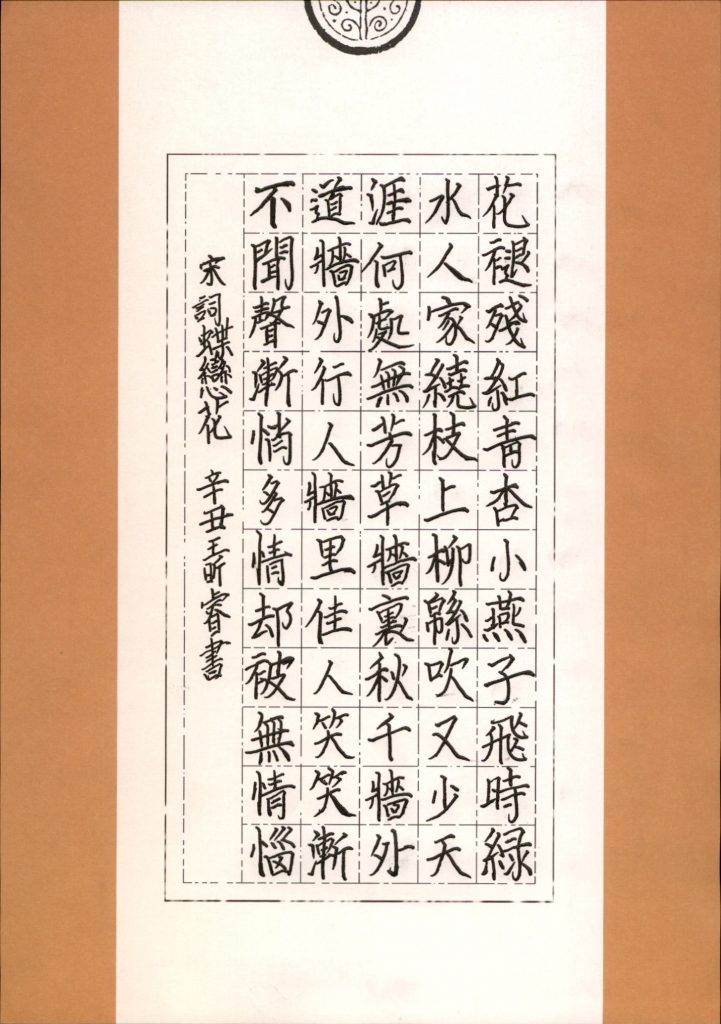 花褪殘紅青杏小燕子飛時緑
水人家繞枝上柳緜吹又少天
涯何處無芳草牆裏秋千牆外
道牆外行人牆里佳人笑笑漸
不聞聲漸悄多情却被無情惱
宋詞蝶戀花 辛丑王昕睿書